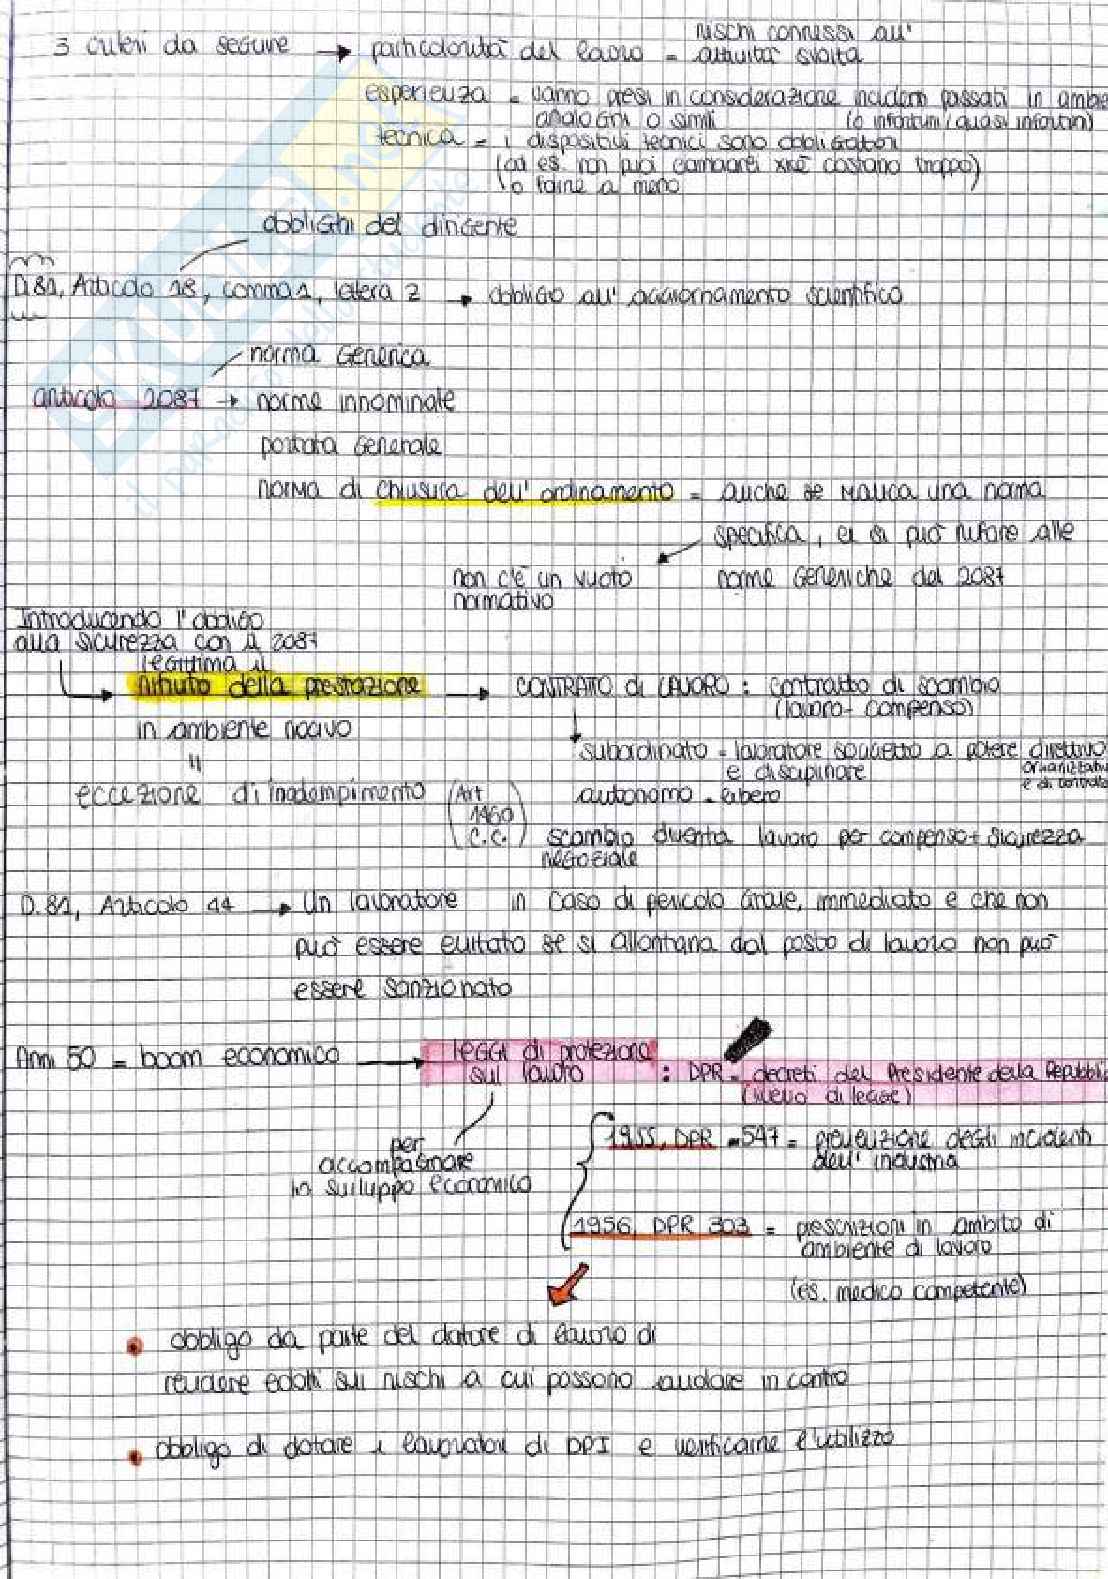 rischi connessi all'
3 criteri da seguire → particolarità del lavoro = attività svolta
esperienza = vanno presi in considerazione incidenti passati in ambie
analoghi o simili (o infortuni/quasi infortuni)
tecnica = i dispositivi tecnici sono obbligatori
(ad es. non puoi cambiarti xkè costano troppo)
o farne a meno
obblighi del dirigente
D.81, Articolo 18, comma 1, lettera z → obbligo all'aggiornamento scientifico
norma generica
articolo 2087 → norme innominate
portata generale
norma di chiusura dell'ordinamento = anche se manca una norma
specifica, ci si può rifare alle
non c'è un vuoto norme generiche del 2087
normativo
Introducendo l'obbligo
alla sicurezza con il 2087
legittima il
rifiuto della prestazione → CONTRATTO di LAVORO : contratto di scambio
(lavoro - compenso)
in ambiente nocivo
subordinato = lavoratore soggetto a potere direttivo
" e disciplinare organizzativo
e di controllo
eccezione di inadempimento (Art 1460 C.C.) autonomo = libero
scambio diventa lavoro per compenso + sicurezza
negoziale
D.81, Articolo 44 → Un lavoratore in caso di pericolo grave, immediato e che non
può essere evitato se si allontana dal posto di lavoro non può
essere sanzionato
Anni 50 = boom economico → leggi di protezione
sul lavoro : DPR = decreti del Presidente della Repubbli
(livello di legge)
per
accompagnare
lo sviluppo economico
1955, DPR 547 = prevenzione degli incidenti
dell'industria
1956, DPR 303 = prescrizioni in ambito di
ambiente di lavoro
(es. medico competente)
• obbligo da parte del datore di lavoro di
rendere edotti sui rischi a cui possono andare in contro
• obbligo di dotare i lavoratori di DPI e verificarne l'utilizzo
SKUOLA.net